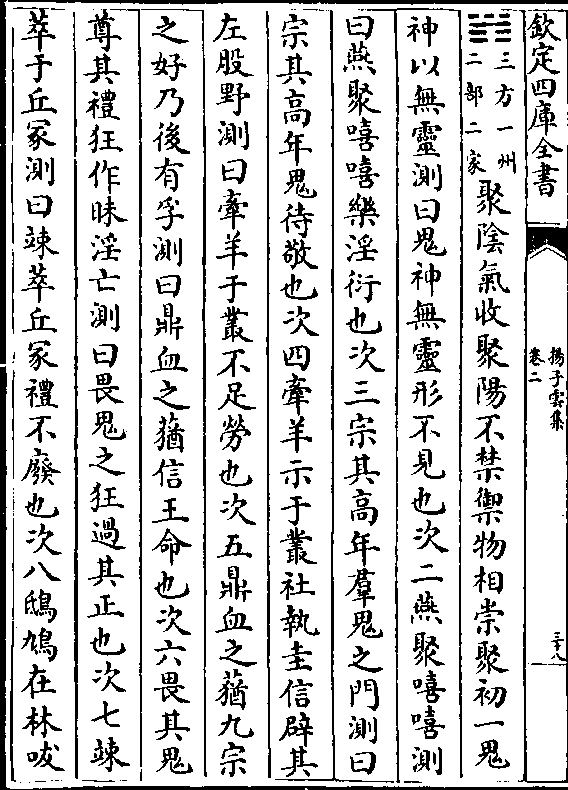 欽定四庫全書
揚子雲集
卷二
三十八
三方一州
二部二家
聚陰氣收聚陽不禁禦物相崇聚初一鬼
神以無靈測曰鬼神無靈形不見也次二燕聚嘻嘻測
曰燕聚嘻嘻樂淫衍也次三宗其高年羣鬼之門測曰
宗其高年鬼待敬也次四牽羊示于叢社執圭信辟其
左股野測曰牽羊于叢不足勞也次五鼎血之蕕九宗
之好乃後有孚測曰鼎血之蕕信王命也次六畏其鬼
尊其禮狂作昧淫亡測曰畏鬼之狂過其正也次七竦
萃于丘冢測曰竦萃丘冢禮不廢也次八鴟鳩在林咙